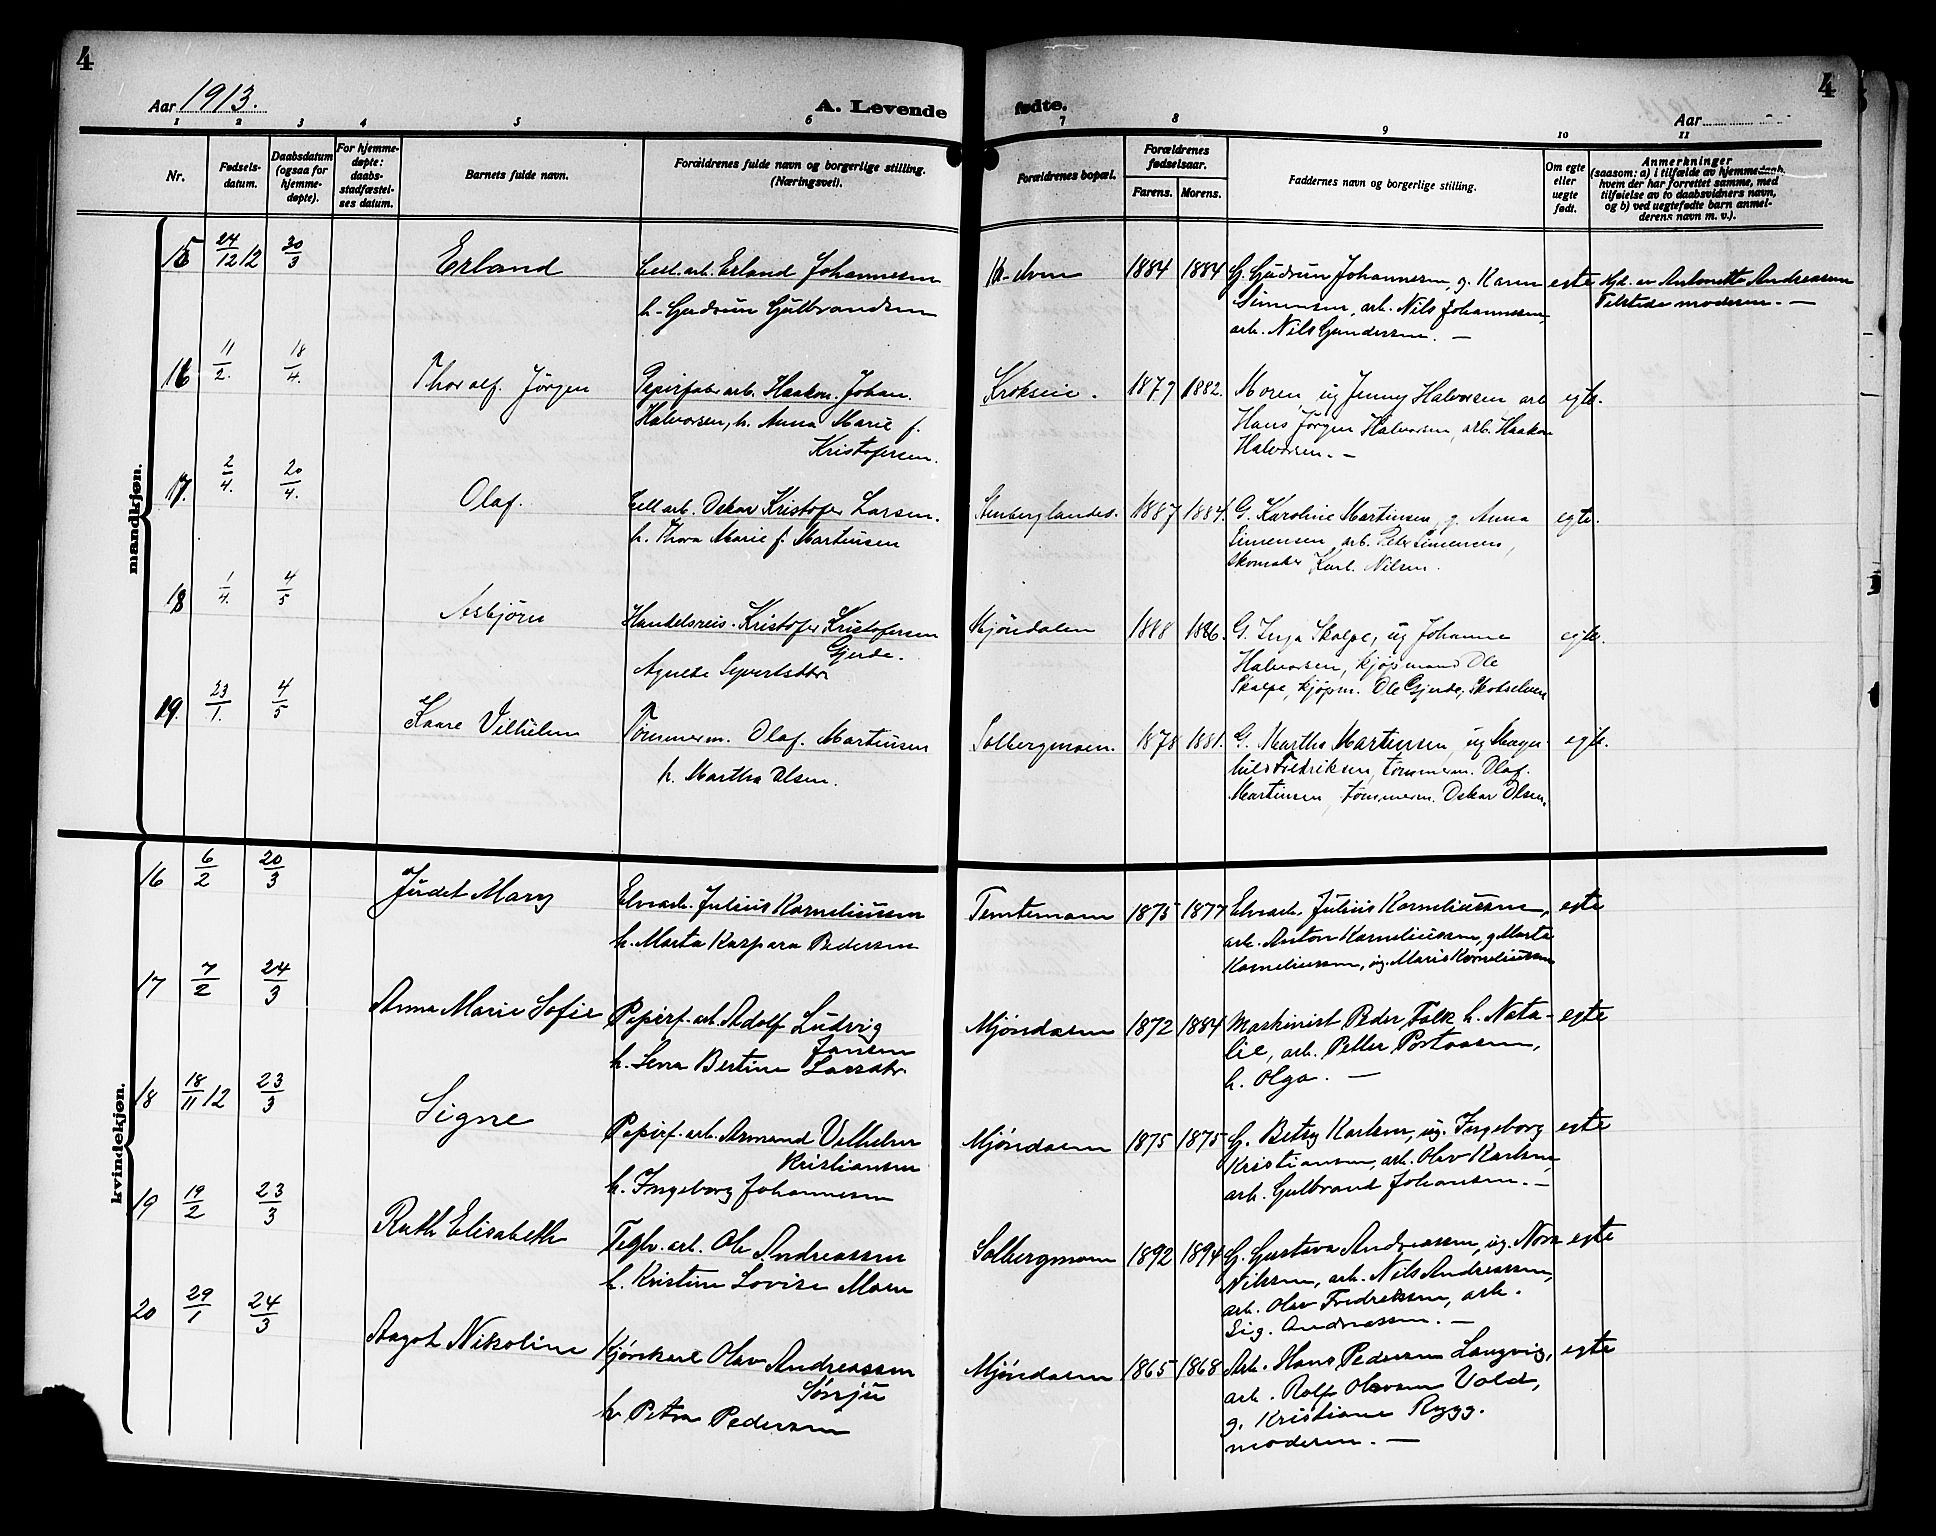 4
4
Aar 1913.
A. Levende
fødte.
Aar
1 2 3 4 5 6
7 8 9 10 11
Nr.
Fødsels-
datum.
Daabsdatum
(ogsaa for
hjemme-
døpte).
For hjemme-
døpte:
daabs-
stadfæstel-
ses datum.
Barnets fulde navn.
Forældrenes fulde navn og borgerlige stilling.
(Næringsvei).
Forældrenes bopæl.
Forældrenes
fødselsaar.
Farens. Morens.
Faddernes navn og borgerlige stilling.
Om egte
eller
uegte
født.
Anmerkninger
(saasom: a) i tilfælde av hjemmedaab,
hvem der har forrettet samme, med
tilføielse av to daabsvidners navn,
og b) ved uegtefødte barn anmel-
derens navn m. v.).
mandkjøn.
15 24/12 12 30/3 Erland
Cell. arb. Erland Johannesen
h. Gudrun Gulbrandsen
1884 1884
G. Gudrun Johannesen, g. Karen
Simensen, arb. Nils Johannesen,
arb. Nils Gundersen. —
egte
Hjd. av Antonette Andreassen
Tilstede moderen. —
16 11/2. 18/4. Thoralf Jørgen
Papirfabr arb. Haakon Johan
Halvorsen, h. Anna Marie f.
Kristofersen.
Kroksein. 1879 1882.
Moren, ug Jenny Halvorsen arb
Hans Jørgen Halvorsen, arb. Haakon
Halvorsen. —
egte.
17. 2/4. 20/4. Olaf.
Cell arb. Oskar Kristofer Larsen.
h. Thora Marie f. Martinsen
Stenberglandes. 1887 1884.
G. Karoline Martinsen, g. Anna
Simensen, arb. Peter Simensen,
skomaker Karl Nilsen.
egte.
18 1/4. 4/5 Asbjørn
Handelsreis. Kristofer Kristofersen
Gjerde.
Agnete Syvertsdtr
Mjøndalen 1888 1886.
G. Inga Skalpe, ug Johanne
Halvorsen, kjøpmand Ole
Skalpe, kjøpm. Ole Gjerde, Skotselven
egte.
19. 23/1. 4/5 Kaare Vilhelm
Tømmerm. Olaf Martinsen
h. Martha Olsen.
Solbergmoen. 1878 1881.
G. Martha Martinsen, ug Magn-
hild Fredriksen, tømmerm. Olaf
Martinsen, tømmerm. Oskar Olsen.
egte.
kvindekjøn.
16 6/2 20/3 Judet Mary
Elvearb. Julius Korneliussen
h. Marta Kaspara Pedersen
Temtemoen 1875 1877
Elvearb. Julius Korneliussen,
arb. Anton Korneliussen, g Marta
Korneliussen, ug. Marie Korneliussen
egte
17 7/2 24/3 Anna Marie Sofie
Papirf. arb. Adolf Ludvig
Jansen
h. Lena Bertine Larsdtr.
Mjøndalen 1872 1884
Maskinist Peder Falk h. Nata-
lie, arb. Petter Portaasen,
h. Olga. —
egte
18 18/11 12 23/3 Signe
Papirf. arb. Armand Vilhelm
Kristiansen
h. Ingeborg Johannesen
Mjøndalen 1875 1875
G. Betsy Karlsen, ug. Ingeborg
Kristiansen, arb. Olav Karlsen,
arb. Gulbrand Johansen. —
egte
19 19/2 23/3 Ruth Elisabeth
Teglv. arb. Ole Andreassen
h. Kristine Lovise Moen
Solbergmoen 1892 1894
G. Gustava Andreassen, ug. Nora
Nilsen, arb. Nils Andreassen,
arb. Olav Fredriksen, arb.
Sig. Andreassen. —
egte
20 29/1 24/3 Aagot Nikoline
Kjørekarl Olav Andreassen
Sørsju
h. Petra Pedersen
Mjøndalen 1865 1868
Arb. Hans Pedersen Langvig,
arb. Rolf Olavsen Vold,
g. Kristiane Rygg.
moderen. —
egte